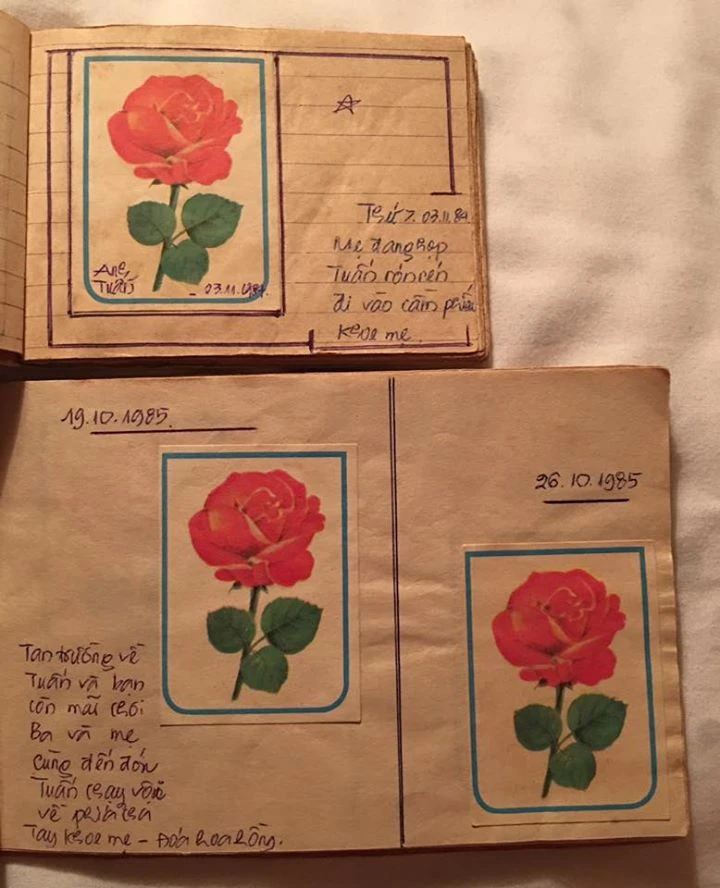 Thứ 7. 03.11.84
Mẹ đang họp
Tuấn rón rén
đi vào cầm phiếu
khoe mẹ.
Anh
Tuấn
- 03.11.1984.
19.10.1985.
26.10.1985
Tan trường về
Tuấn và bạn
còn mãi chơi
Ba và mẹ
cùng đến đón
Tuấn chạy vội
về phía
Tay khoe mẹ - Đoá hoa hồng.